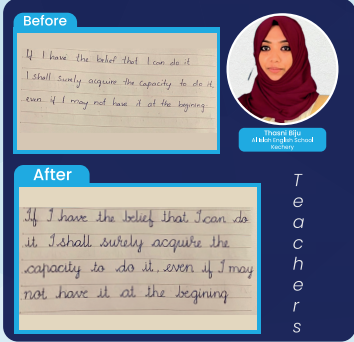 Before
If I have the belief that I can do it
I shall surely acquire the capacity to do it,
even if I may not have it at the begining
Thasni Biju
Al Islah English School
Kechery
After
If I have the belief that I can do
it I shall surely acquire the
capacity to do it, even if I may
not have it at the begining
Teachers